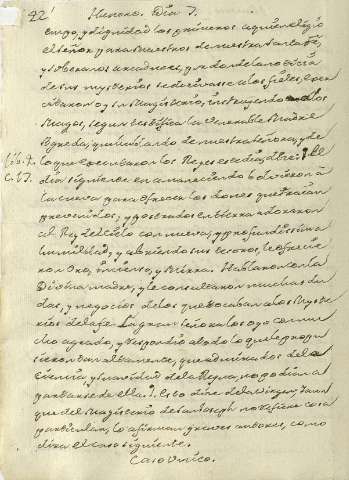 42 Henero. Dia 7.
tiempo, y dignidad los primeros a quien eligio
el Señor para Maestros de nuestra Santa fe,
y soberanos arcaduces, por donde la noticia
de sus mysterios se derivase a los fieles, exer
citaron oy su Magisterio, instruyendo a los
Magos, segun testifica la Venerable Madre
Agreda, que hablando de nuestra Señora, y de
lo que executaron los Reyes este dia, dice: El
dia siguiente en amaneciendo bolvieron a
la cueva para ofrecer los dones que traian
prevenidos; y postrados en tierra adoraron
al Rey del Cielo con nueva, y profundissima
humildad, y abriendo sus tesoros, le ofrecie
ron Oro, incienso, y Mirra. Hablaron con la
Divina madre, y le consultaron muchas du
das, y negocios de los que tocaban a los Myste
rios de la fe. La gran Señora los oyo con mu
cho agrado, y respondio a todo lo que le propu
sieron tan altamente, que admirados de la
ciencia, y suavidad de la Reyna, no podian a
partarse de ella. Esto dice de la Virgen, y aun
que del Magisterio de San Joseph no refiere cosa
particular, lo afirman graves autores, como
dira el caso siguiente.
Caso Unico.